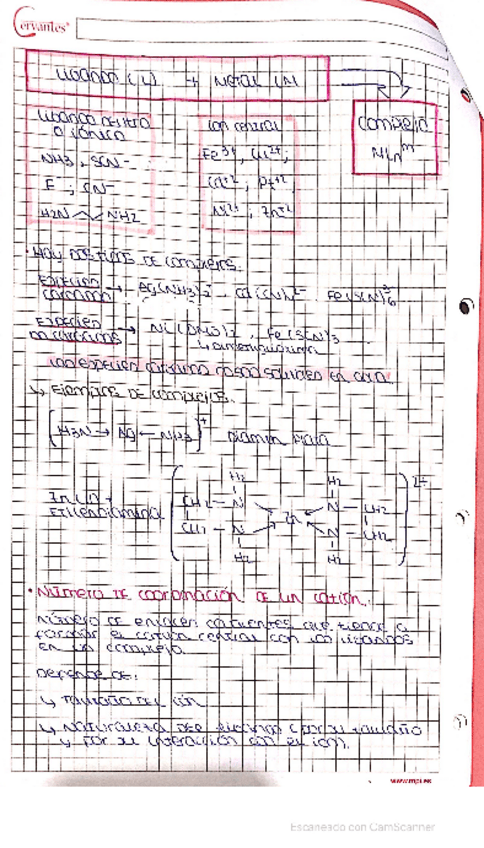 Cervantes
LIGANDO (L) + METAL (M)
COMPLEJO
MLn^m
LIGANDO NEUTRO
O IÓNICO
NH3, SCN-
F-, CN-
H2N NH2
ION CENTRAL
Fe3+,
Pt+2,
Ni2+, Zn+2
• HAY DOS TIPOS DE COMPLEJOS:
ESPECIES
CARGADAS → Ag(NH3)2 Fe(SCN)6
ESPECIES
NO CARGADAS → Ni(DMG)2, Fe(SCN)3
↳ dimetilglioxima
EN AGUA
↳ EJEMPLOS DE COMPLEJOS.
[H3N → Ag ← NH3]+ DIAMIN PLATA
ETILENDIAMINA
H2 H2
CH2 — N N — CH2
Zn
CH2 — N N — CH2
H2 H2
2+
• NÚMERO DE COORDINACIÓN DE UN CATIÓN.
NÚMERO DE ENLACES COVALENTES QUE TIENDE A
FORMAR EL CATIÓN CENTRAL CON LOS LIGANDOS
EN UN COMPLEJO.
DEPENDE DE:
↳ TAMAÑO DEL IÓN
↳ NATURALEZA DEL LIGANDO (POR SU TAMAÑO
y POR SU INTERACCIÓN CON EL ION.
Escaneado con CamScanner